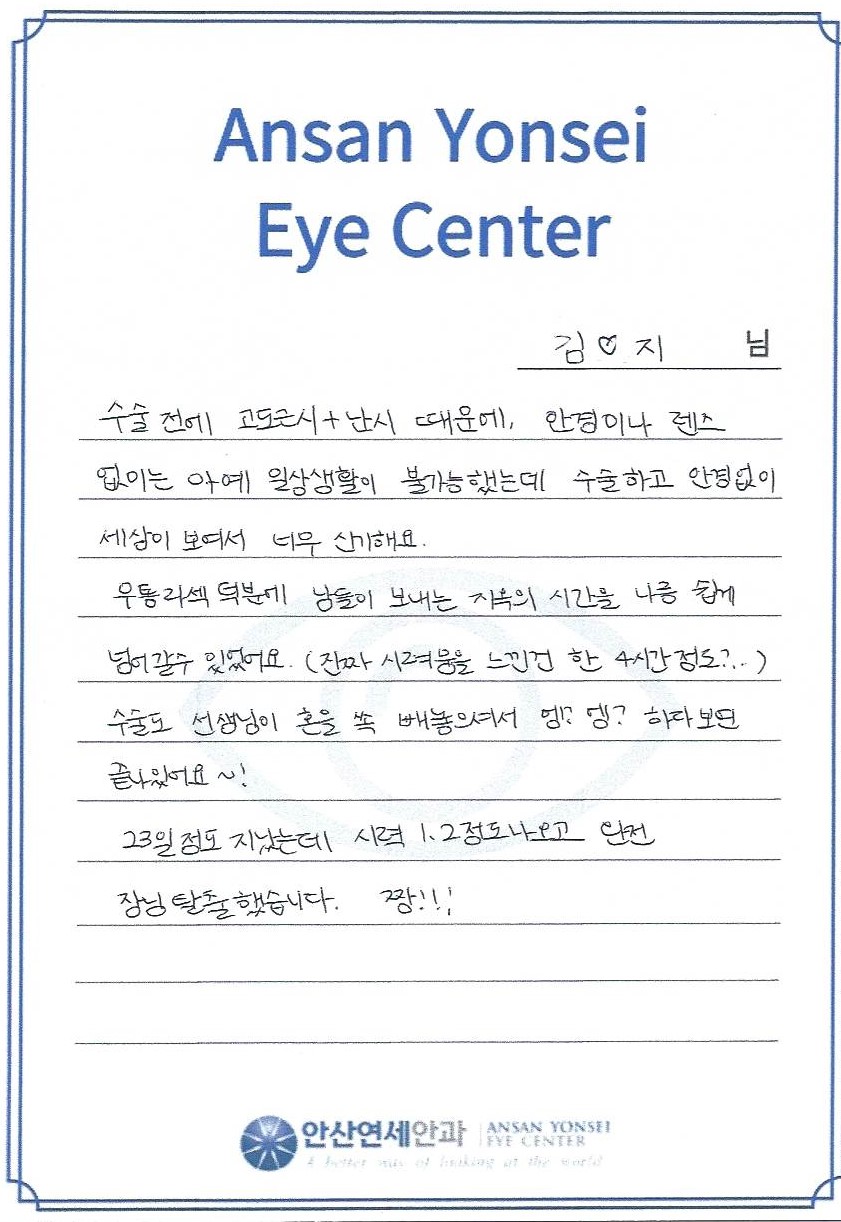 Ansan Yonsei
Eye Center
김♡지 님
수술 전에 고도근시+난시 때문에, 안경이나 렌즈
없이는 아예 일상생활이 불가능했는데 수술하고 안경없이
세상이 보여서 너무 신기해요.
무통라섹 덕분에 남들이 보내는 지옥의 시간을 나름 쉽게
넘어갈수 있었어요. (진짜 시려움을 느낀건 한 4시간정도?..)
수술도 선생님이 혼을 쏙 빼놓으셔서 엥? 엥? 하다보면
끝나있어요~!
23일정도 지났는데 시력 1.2정도나오고 완전
장님탈출했습니다. 짱!!!
안산연세안과 ANSAN YONSEI
EYE CENTER
A better way of looking at the world